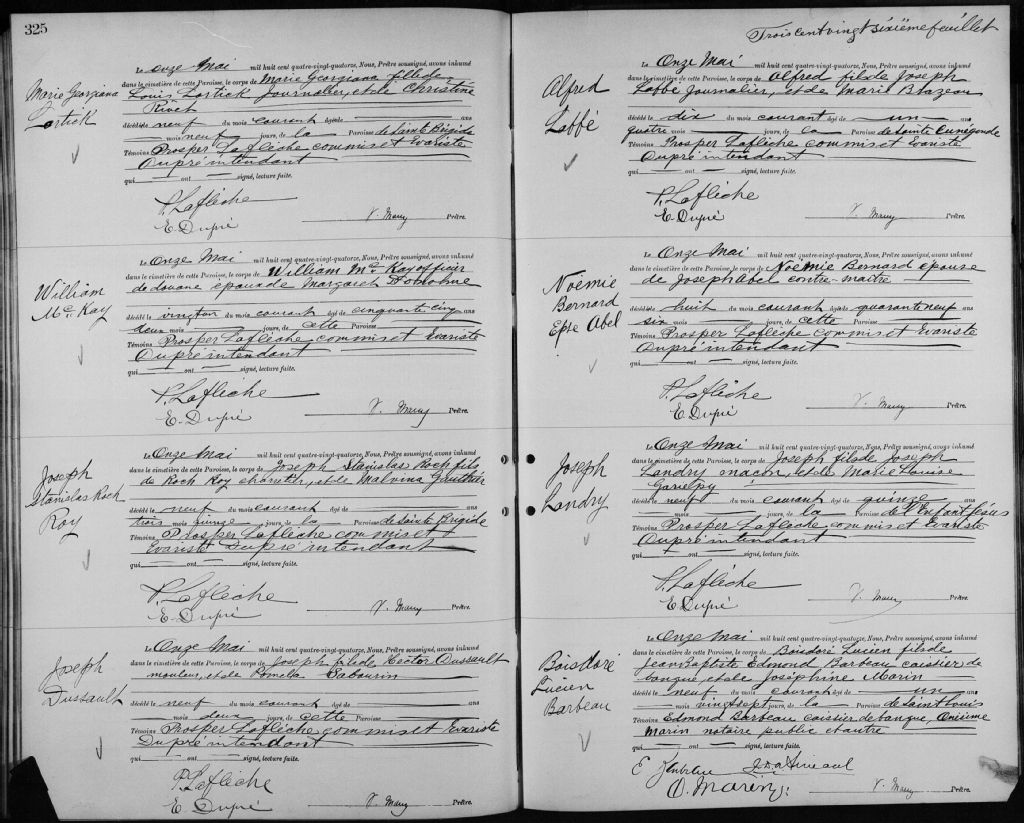 325
Marie Georgiana
Lortick
Le onze Mai mil huit cent quatre-vingt-quatorze, Nous, Prêtre soussigné, avons inhumé
dans le cimetière de cette Paroisse, le corps de Marie Georgiana fille de
Louis Lortick Journalier, et de Christine
décédé le neuf du mois courant âgé de ans
mois neuf jours, de la Paroisse de Sainte Brigide
Témoins Prosper Laflèche commis et Evariste
Dupré intendant
qui ont signé, lecture faite.
P. Laflèche
E. Dupré
Prêtre.
William
Mc Kay
Le Onze Mai mil huit cent quatre-vingt-quatorze, Nous, Prêtre soussigné, avons inhumé
dans le cimetière de cette Paroisse, le corps de William Mc Kay officier
de douane époux de Margaret
décédé le du mois courant âgé de cinquante cinq ans
deux mois jours, de cette Paroisse
Témoins Prosper Laflèche commis et Evariste
Dupré intendant
qui ont signé, lecture faite.
P. Laflèche
E. Dupré
Prêtre.
Joseph
Stanislas Roch
Roy
Le Onze Mai mil huit cent quatre-vingt-quatorze, Nous, Prêtre soussigné, avons inhumé
dans le cimetière de cette Paroisse, le corps de Joseph Stanislas Roch fils
de Roch Roy charretier, et de Malvina Gauthier
décédé le neuf du mois courant âgé de ans
trois mois jours, de la Paroisse de Sainte Brigide
Témoins Prosper Laflèche commis et
Evariste Dupré intendant
qui ont signé, lecture faite.
P. Laflèche
E. Dupré
Prêtre.
Joseph
Dussault
Le Onze Mai mil huit cent quatre-vingt-quatorze, Nous, Prêtre soussigné, avons inhumé
dans le cimetière de cette Paroisse, le corps de Joseph fils de Hector Dussault
mouleur, et de Pomela Sabourin
décédé le neuf du mois courant âgé de ans
mois deux jours, de cette Paroisse
Témoins Prosper Laflèche commis et Evariste
Dupré intendant
qui ont signé, lecture faite.
P. Laflèche
E. Dupré
Prêtre.
Trois cent vingt sixième feuillet
Alfred
Labbé
Le Onze Mai mil huit cent quatre-vingt-quatorze, Nous, Prêtre soussigné, avons inhumé
dans le cimetière de cette Paroisse, le corps de Alfred fils de Joseph
Labbé Journalier, et de Marie Blazeau
décédé le dix du mois courant âgé de un ans
quatre mois jours, de la Paroisse de Sainte Cunégonde
Témoins Prosper Laflèche commis et Evariste
Dupré intendant
qui ont signé, lecture faite.
P. Laflèche
E. Dupré
Prêtre.
Noémie
Bernard
Epse Abel
Le Onze Mai mil huit cent quatre-vingt-quatorze, Nous, Prêtre soussigné, avons inhumé
dans le cimetière de cette Paroisse, le corps de Noémie Bernard épouse
de Joseph Abel contre-maître
décédé le huit du mois courant âgé de quarante neuf ans
six mois jours, de cette Paroisse
Témoins Prosper Laflèche commis et Evariste
Dupré intendant
qui ont signé, lecture faite.
P. Laflèche
E. Dupré
Prêtre.
Joseph
Landry
Le Onze Mai mil huit cent quatre-vingt-quatorze, Nous, Prêtre soussigné, avons inhumé
dans le cimetière de cette Paroisse, le corps de Joseph fils de Joseph
Landry maçon, et de Marie Louise
Gariepy
décédé le neuf du mois courant âgé de quinze ans
mois jours, de la Paroisse de l'Enfant Jésus
Témoins Prosper Laflèche commis et Evariste
Dupré intendant
qui ont signé, lecture faite.
P. Laflèche
E. Dupré
Prêtre.
Boisdoré
Lucien
Barbeau
Le Onze Mai mil huit cent quatre-vingt-quatorze, Nous, Prêtre soussigné, avons inhumé
dans le cimetière de cette Paroisse, le corps de Boisdoré Lucien fils de
Jean Baptiste Edmond Barbeau caissier de
banque, et de Joséphine Marin
décédé le neuf du mois courant âgé de un ans
mois vingt sept jours, de la Paroisse de Saint Louis
Témoins Edmond Barbeau caissier de banque, Onésime
Marin notaire public et autre
qui ont signé, lecture faite.
O. Marin
Prêtre.